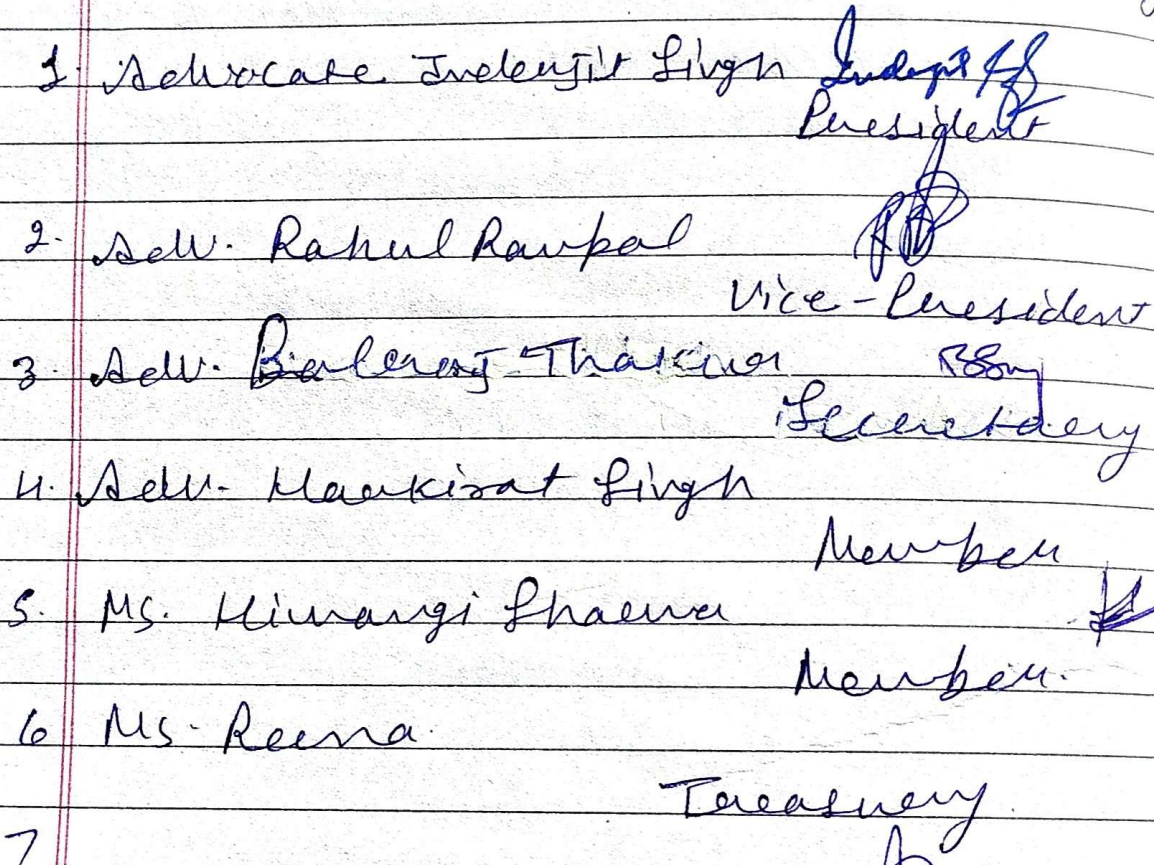 1. Advocate Inderjit Singh
President
2. Adv. Rahul Raupal
Vice-President
3. Adv. Balraj Thakur
Secretary
4. Adv. Harkirat Singh
Member
5. Ms. Himangi Sharma
Member.
6 Ms. Reena.
Treasury.
7